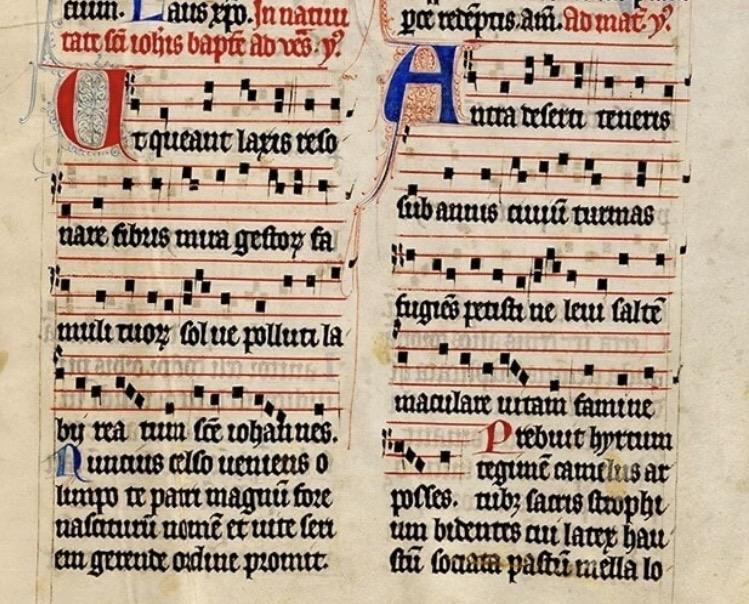 cium. Laus xpo. In natiui
tate sci iohis bapte ad ves. y.
Ut queant laxis reso
nare fibris mira gestoꝝ fa
muli tuoꝝ solue polluti la
bii rea tum sce iohannes.
Nuncius celso ueniens o
limpo te patri magnū fore
nasciturū nomē et uite seri
em gerende ordine promit.
pce redēptis. am̄. Ad mat. y.
Antra deserti teneris
sub annis ciuiū turmas
fugiēs petisti ne leui saltē
maculare uitam famine
posses. Prebuit hyrtum
tegimē camelus ar
tubꝫ sacris strophi
um bidentes cui latex hau
stū sociata pastū mella lo